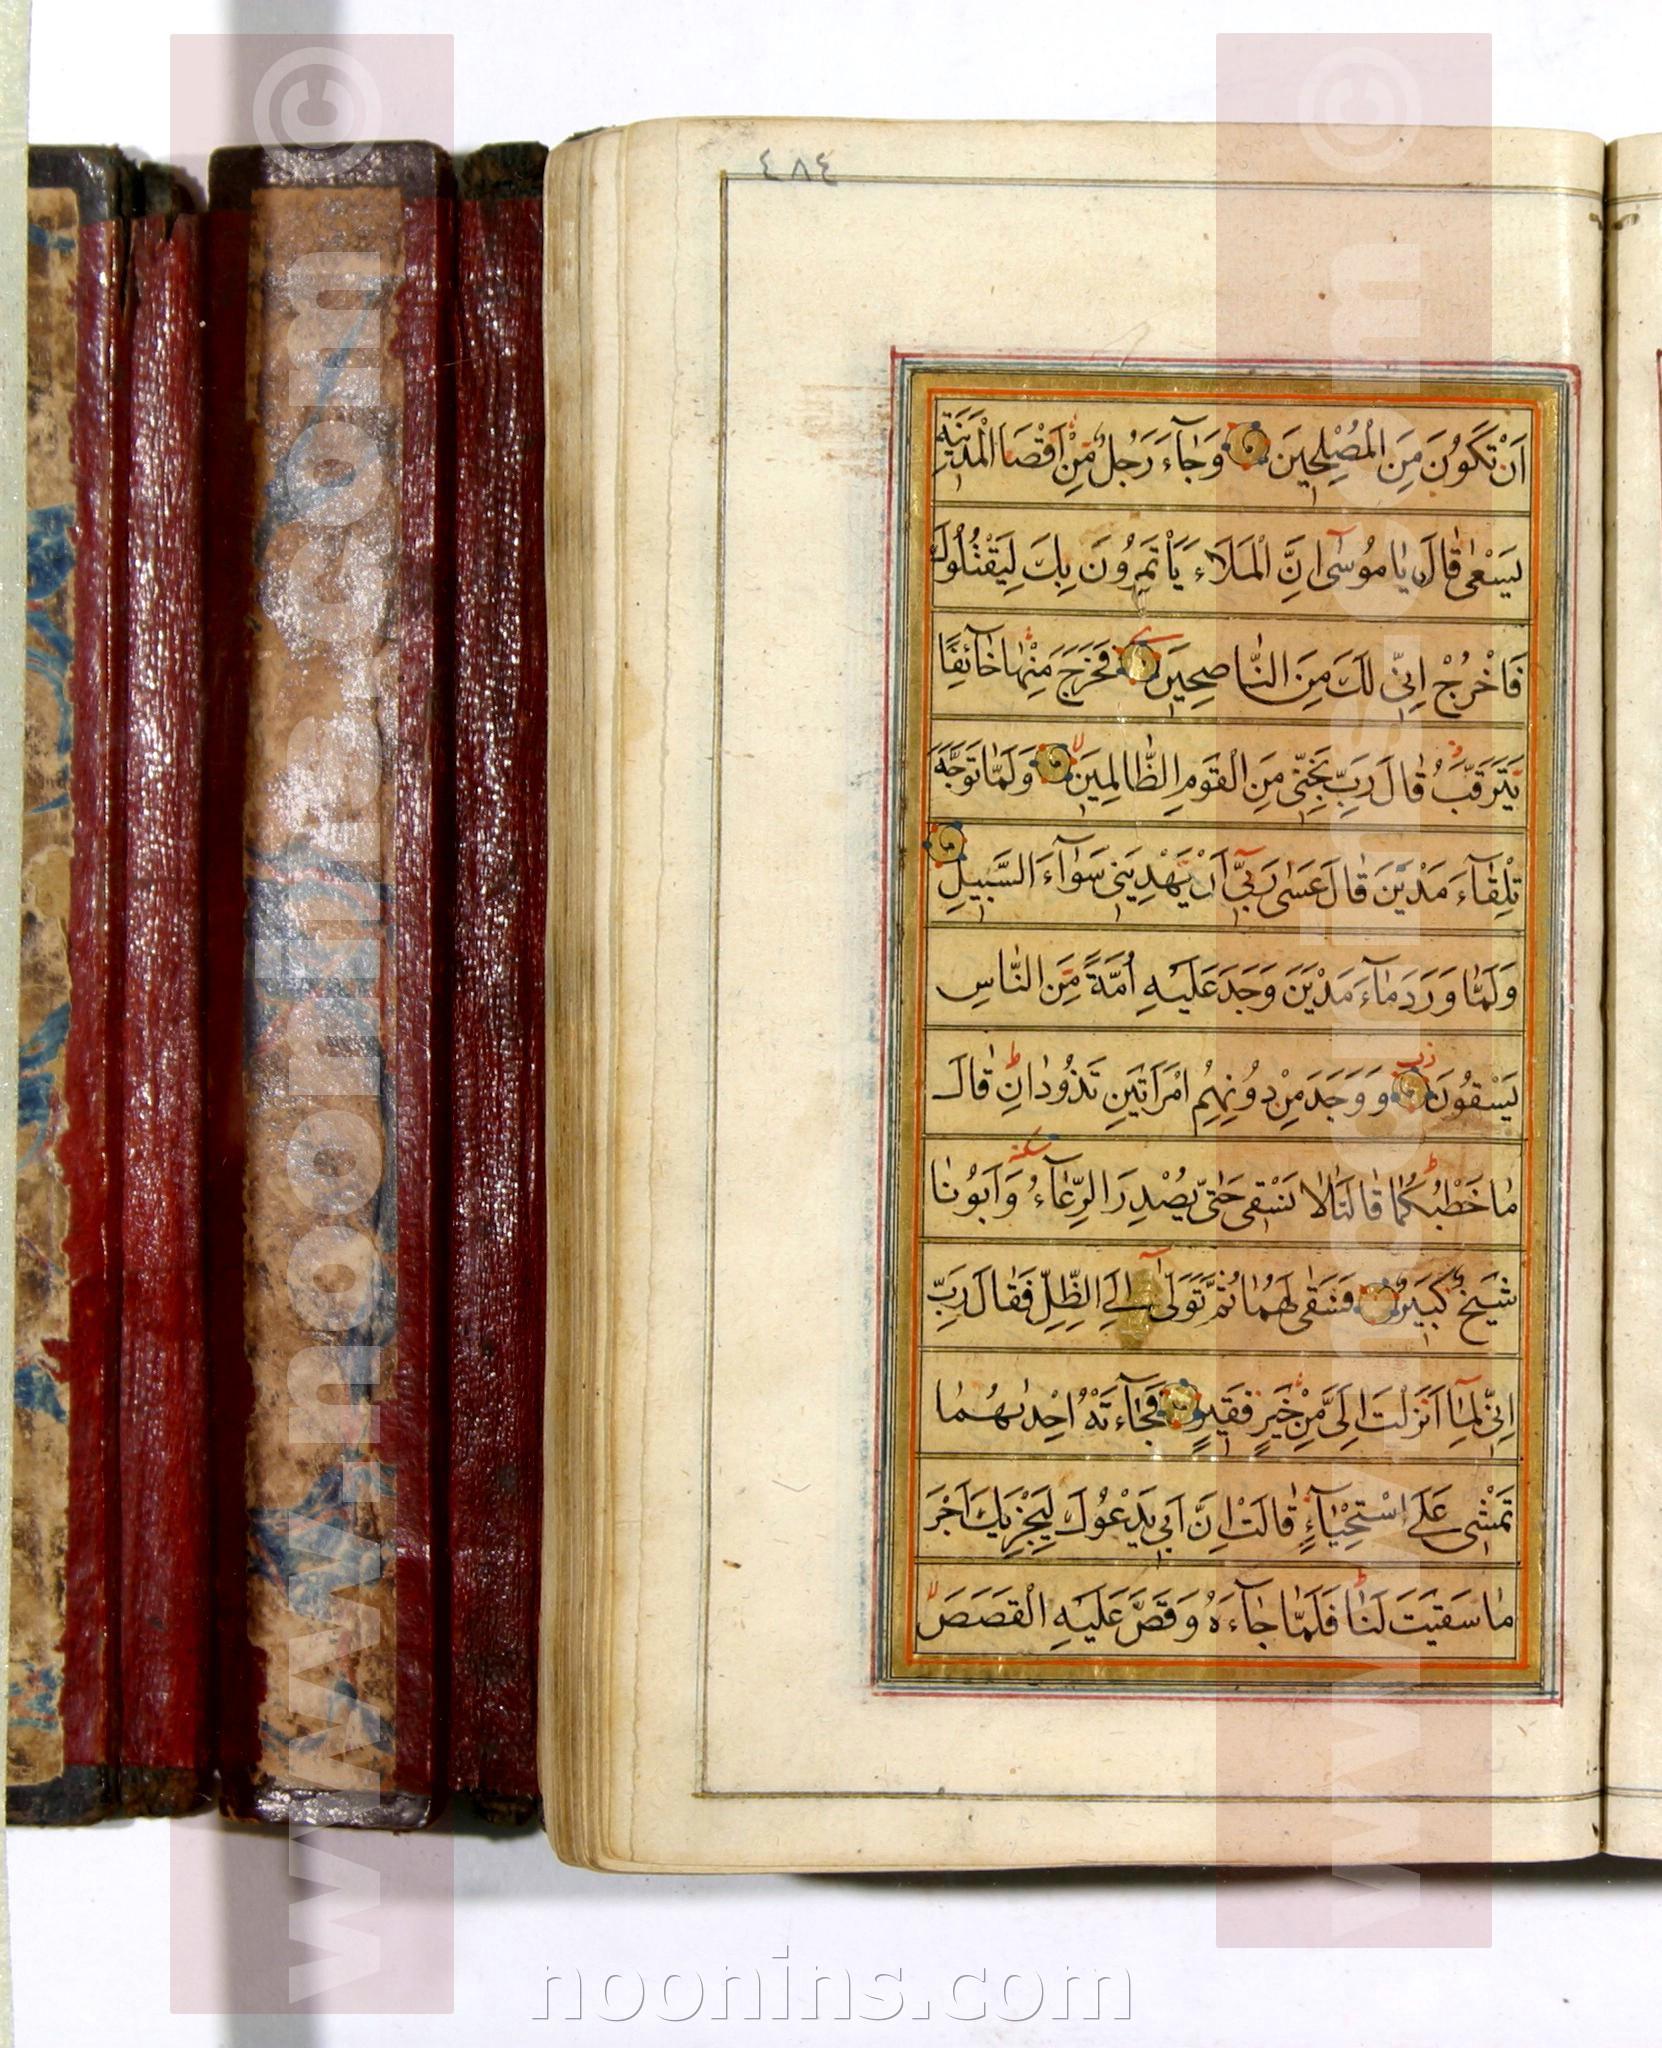 ٤٨٤
اَنْ تَكُونَ مِنَ الْمُصْلِحِينَ وَجَآءَ رَجُلٌ مِنْ اَقْصَا الْمَدِينَةِ
يَسْعٰى قَالَ يَا مُوسٰى اِنَّ الْمَلَاءَ يَاْتَمِرُونَ بِكَ لِيَقْتُلُوكَ
فَاخْرُجْ اِنِّى لَكَ مِنَ النَّاصِحِينَ فَخَرَجَ مِنْهَا خَآئِفًا
يَتَرَقَّبُ قَالَ رَبِّ نَجِّنِى مِنَ الْقَوْمِ الظَّالِمِينَ وَلَمَّا تَوَجَّهَ
تِلْقَآءَ مَدْيَنَ قَالَ عَسٰى رَبِّى اَنْ يَهْدِيَنِى سَوَآءَ السَّبِيلِ
وَلَمَّا وَرَدَ مَآءَ مَدْيَنَ وَجَدَ عَلَيْهِ اُمَّةً مِنَ النَّاسِ
يَسْقُونَ وَوَجَدَ مِنْ دُونِهِمُ امْرَاَتَيْنِ تَذُودَانِ قَالَ
مَا خَطْبُكُمَا قَالَتَا لَا نَسْقِى حَتّٰى يُصْدِرَ الرِّعَآءُ وَاَبُونَا
شَيْخٌ كَبِيرٌ فَسَقٰى لَهُمَا ثُمَّ تَوَلّٰى اِلَى الظِّلِّ فَقَالَ رَبِّ
اِنِّى لِمَا اَنْزَلْتَ اِلَىَّ مِنْ خَيْرٍ فَقِيرٍ فَجَآءَتْهُ اِحْدٰيهُمَا
تَمْشِى عَلَى اسْتِحْيَآءٍ قَالَتْ اِنَّ اَبِى يَدْعُوكَ لِيَجْزِيَكَ اَجْرَ
مَا سَقَيْتَ لَنَا فَلَمَّا جَآءَهُ وَقَصَّ عَلَيْهِ الْقَصَصَ
www.noonins.com ©
www.noonins.com ©
noonins.com